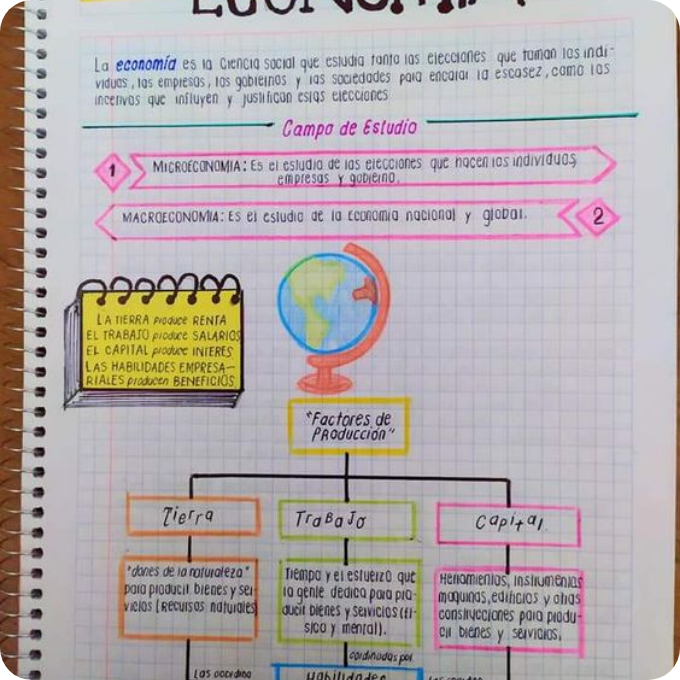 ECONOMÍA
La economía es la ciencia social que estudia tanto las elecciones que toman los indi-
viduos, las empresas, los gobiernos y las sociedades para encarar la escasez, como los
incentivos que influyen y justifican estas elecciones
Campo de Estudio
1
MICROECONOMIA: Es el estudio de las elecciones que hacen los individuos,
empresas y gobierno.
MACROECONOMIA: Es el estudio de la economia nacional y global.
2
LA TIERRA produce RENTA
EL TRABAJO produce SALARIOS
EL CAPITAL produce INTERES
LAS HABILIDADES EMPRESA-
RIALES producen BENEFICIOS
"Factores de
PRODUCCIÓN"
Tierra
TRABAJO
Capital
"dones de la naturaleza"
para producir bienes y ser-
vicios (Recursos naturales)
Tiempo y el esfuerzo que
la gente dedica para pro-
ducir bienes y servicios (fí-
sico y mental).
Herramientas, instrumentos
maquinas, edificios y otras
construcciones para produ-
cir bienes y servicios.
cordinados por
Los coordina
Habilidades